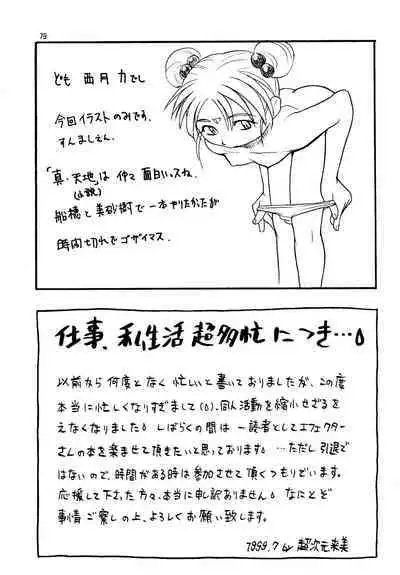 79
ども 西月 力でし
今回イラストのみです。
すんましえん。
「真・天地」は 仲々 面白いっスね。
(小説)
船穂と美砂樹で一本やりたかたが
時間切れでゴザイマス.
仕事、私生活 超多忙 につき…。
以前から 何度となく 忙しいと書いておりましたが、この度
本当に忙しくなりすぎまして(0)、同人活動を縮小せざるを
えなくなりました。しばらくの間は 一読者としてエフェクター
さんの本を楽ませて頂きたいと思っております。…ただし引退で
はないので、時間がある時は参加させて頂くつもりでいます。
応援して下さった方々、本当に申し訳ありません。なにとぞ
事情ご察しの上、よろしくお願い致します。
1999.7 by 超次元来美